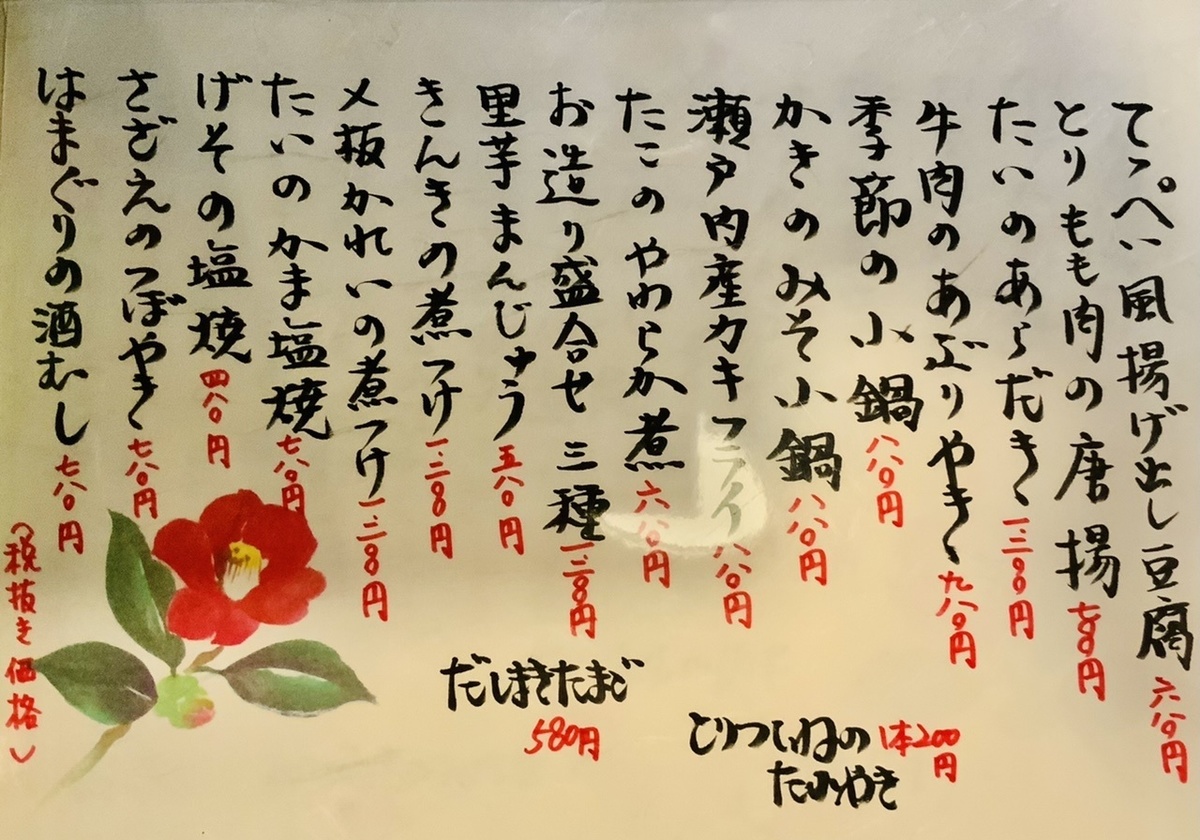 てっぺい風揚げ出し豆腐 六八〇円
とりもも肉の唐揚 七八〇円
たいのあらだき 一、二八〇円
牛肉のあぶりやき 九八〇円
季節の小鍋 八八〇円
かきのみそ小鍋 八八〇円
瀬戸内産カキフライ 八八〇円
たこのやわらか煮 六八〇円
お造り盛合せ 三種 一、三八〇円
里芋まんじゅう 五八〇円
きんきの煮つけ 一、二八〇円
メ板かれいの煮つけ 一、二八〇円
たいのかま塩焼 七八〇円
げその塩焼 四八〇円
さざえのつぼやき 七八〇円
はまぐりの酒むし 七八〇円
(税抜き価格)
だしまきたまご
580円
とりつくねの 1本200円
たれやき